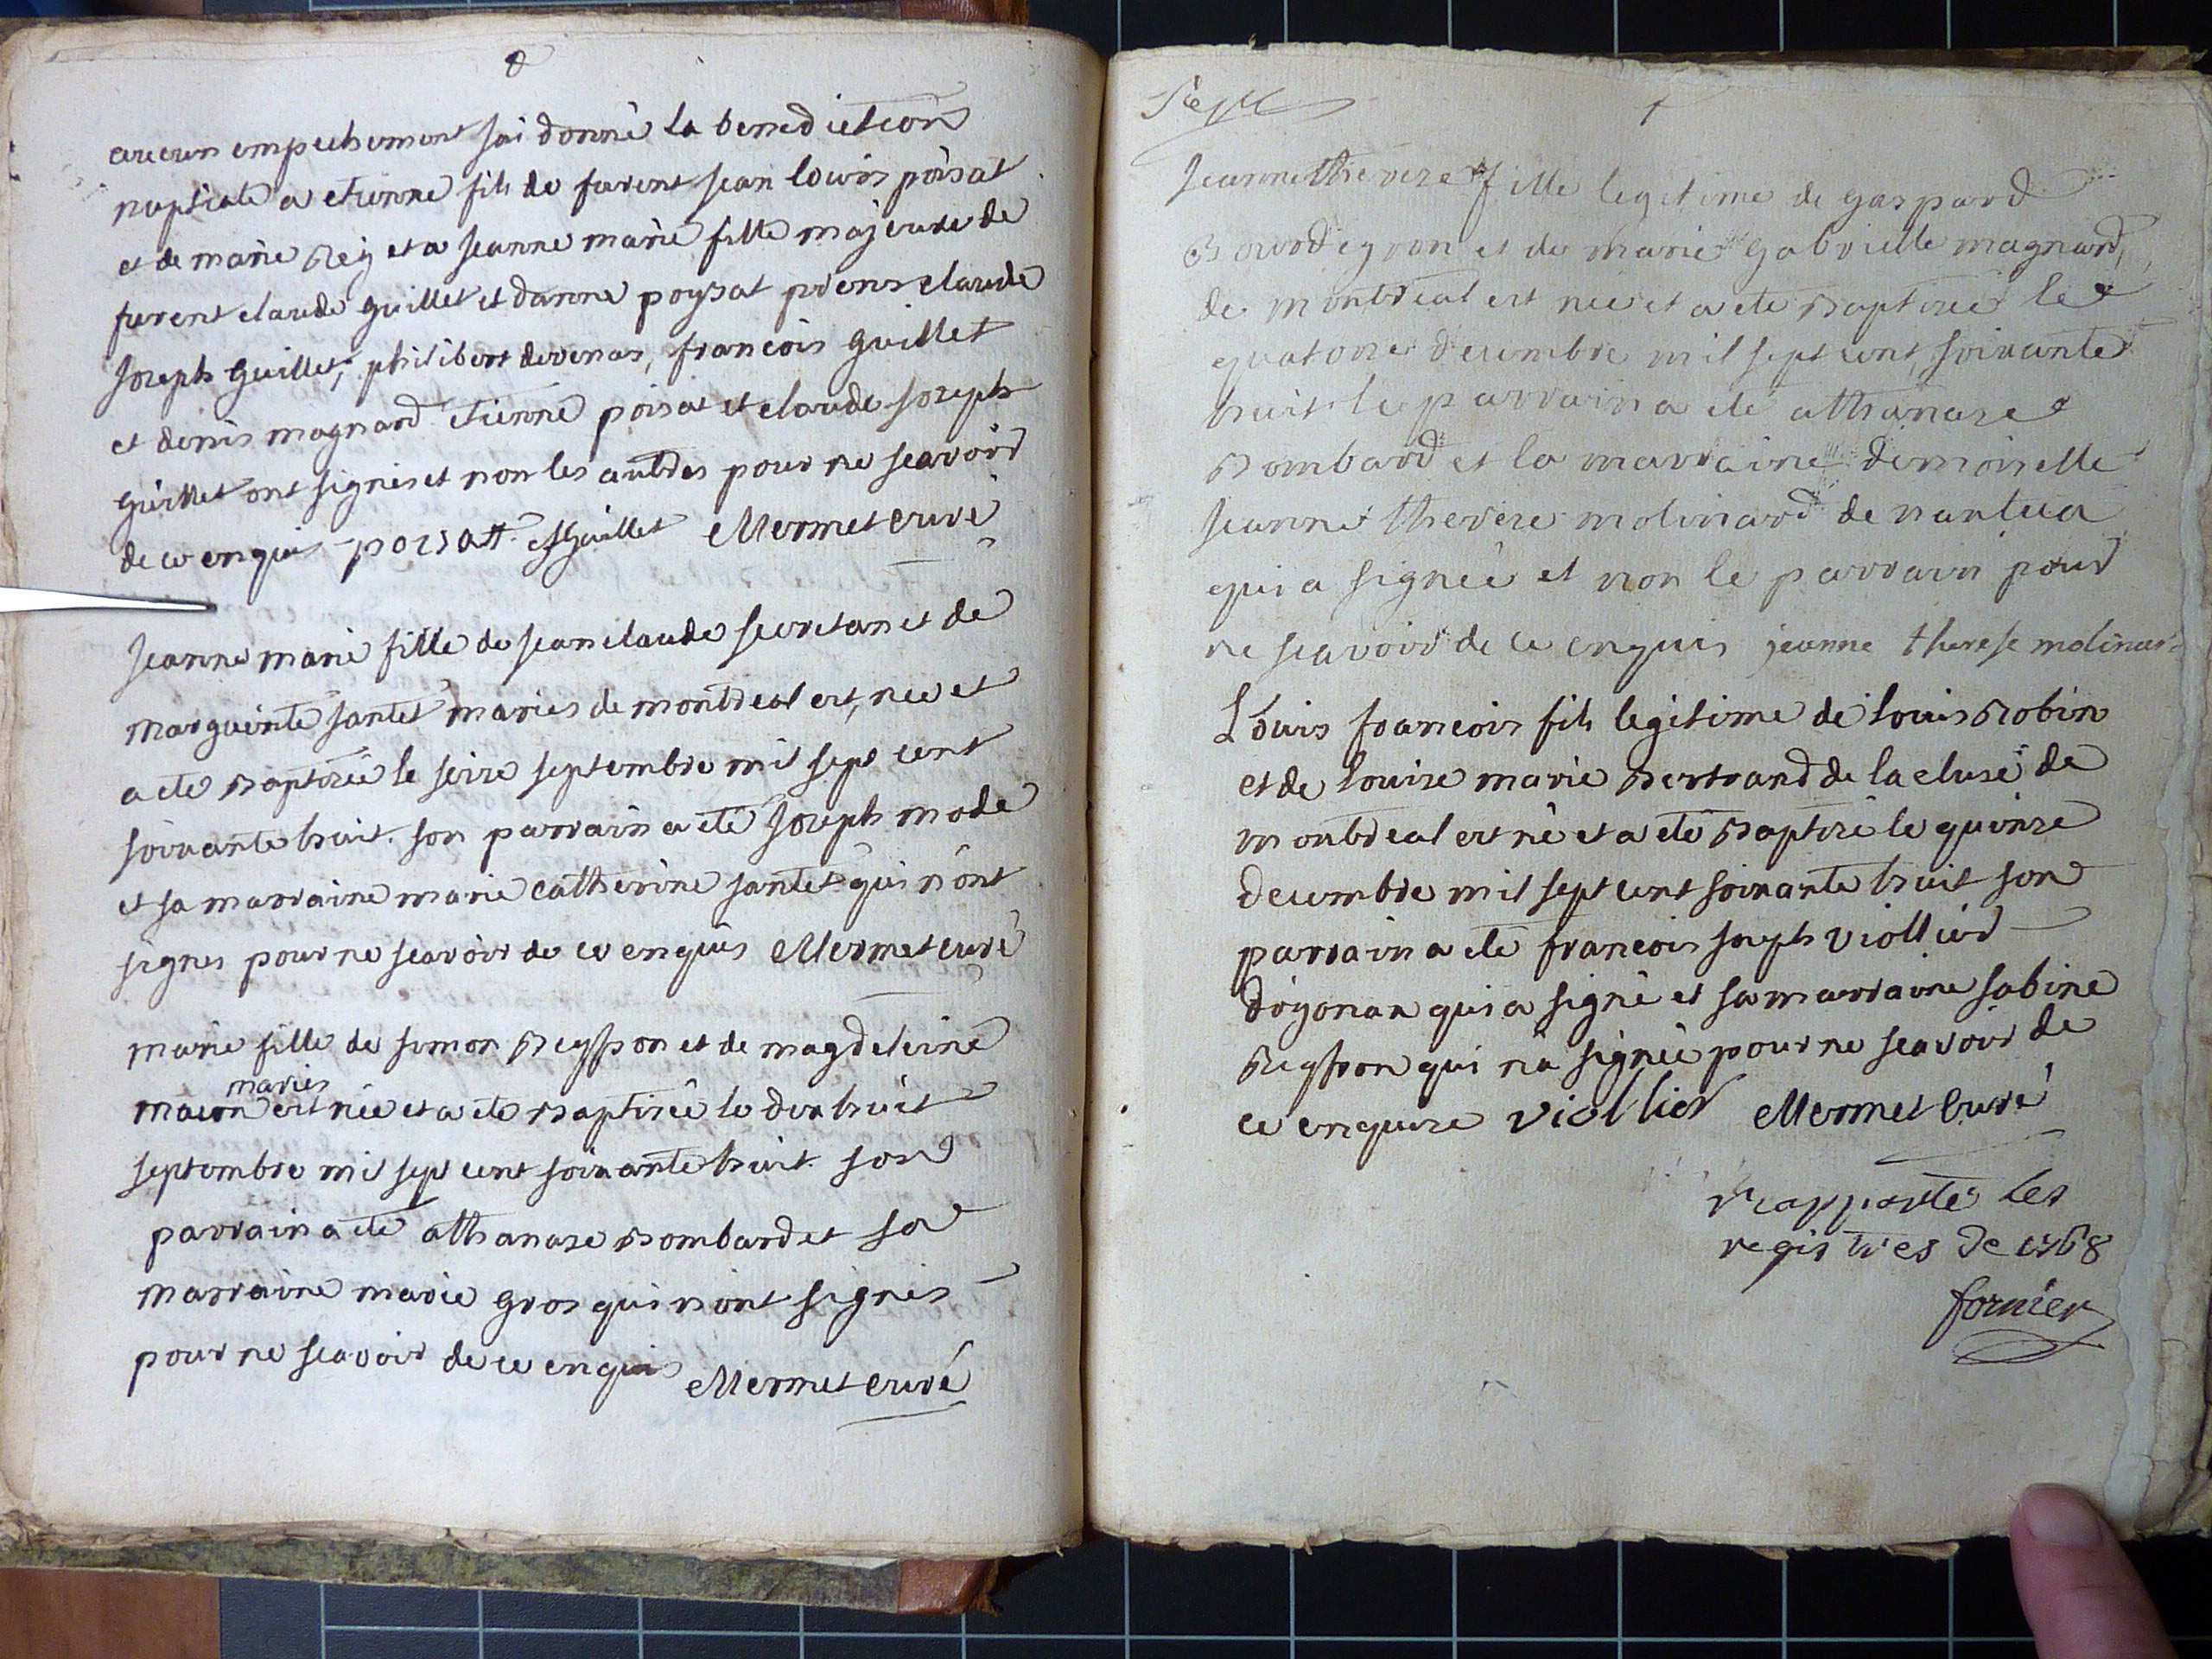 aucun empechement jai donné la benediction
nuptiale a etienne fils de furent jean louis poisat
et de marie Rey et a jeanne marie fille majeure de
furent claude guillet et danne poysat prens claude
joseph guillet, philibert devenas, francois guillet
et denis magnard etienne poisat et claude joseph
guillet ont signés et non les autres pour ne scavoir
de ce enquis poisatt Guillet Mermet curé
jeanne marie fille de jean claude secretan et de
marguerite jantet mariés de montreal est née et
a ete Baptizée le seize septembre mil sept cent
soixante huit. son parrain a eté joseph mode
et sa marraine marie catherine jantet qui n'ont
signes pour ne scavoir de ce enquis Mermet curé
marie fille de simon Reysson et de magdeleine
maries
macon est née et a ete Baptisée le dix huit
septembre mil sept cent soixante huit son
parrain a ete athanase Bombard et sa
marraine marie gros qui n'ont signés
pour ne scavoir de ce enquis Mermet curé
Sept
jeanne therese fille legitime de gaspard
Bourdeyron et de marie gabrielle magnard
de montreal est née et a ete Baptizée le
quatorze decembre mil sept cent soixante
huit le parrain a eté athanase
Bombard et la marraine demoiselle
jeanne therese molinard de nantua
qui a signée et non le parrain pour
ne scavoir de ce enquis jeanne therese molinar
Louis francois fils legitime de louis Robin
et de louise marie Bertrand de la cluse de
montreal est né et a eté Baptizé le quinze
decembre mil sept cent soixante huit son
parrain a eté francois joseph viollier
d'oyonax qui a signé et sa marraine sabine
Reysson qui n'a signée pour ne scavoir de
ce enquise viollier Mermet curé
rapporté les
registres de 1768
fornier